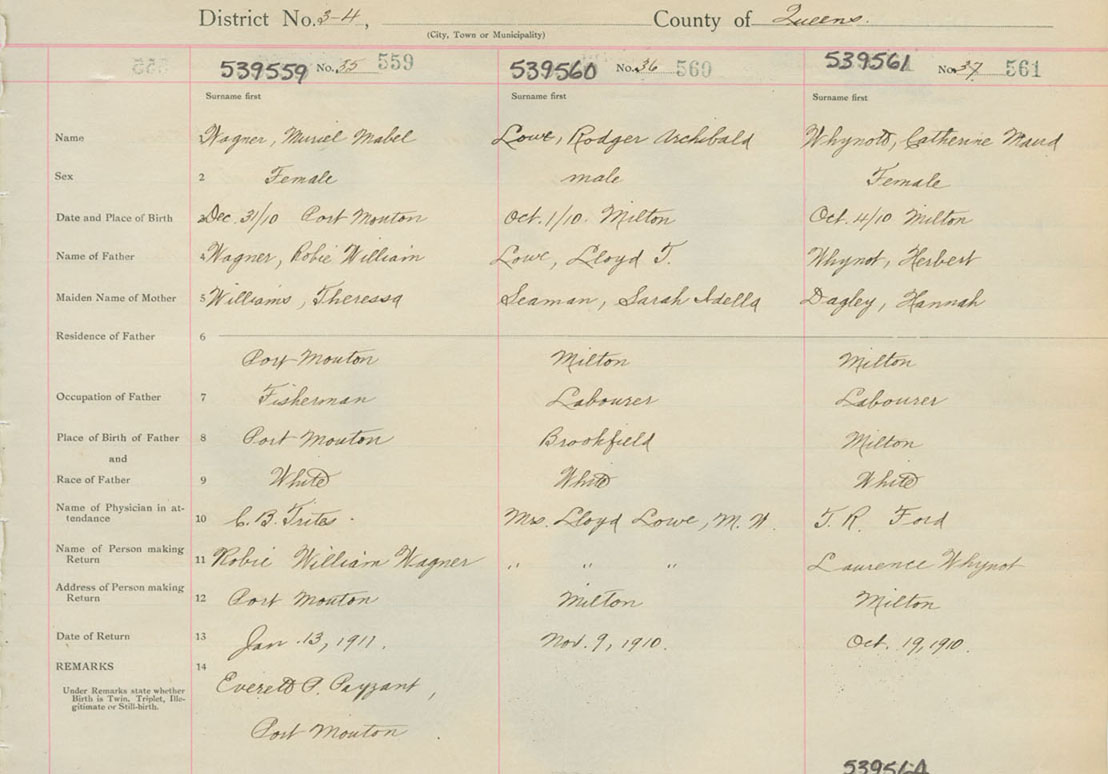 District No. 3-4, County of Queens.
(City, Town or Municipality)
539559 No. 35 559 539560 No. 36 560 539561 No. 37 561
Surname first Surname first Surname first
Name Wagner, Muriel Mabel Lowe, Rodger Archibald Whynott, Catherine Maud
Sex 2 Female male Female
Date and Place of Birth 3 Dec. 31/10 Port Mouton Oct. 1/10. Milton Oct. 4/10 Milton
Name of Father 4 Wagner, Robie William Lowe, Lloyd T. Whynot, Herbert
Maiden Name of Mother 5 Williams, Theressa Seaman, Sarah Adella Dagley, Hannah
Residence of Father 6
Port Mouton Milton Milton
Occupation of Father 7 Fisherman Labourer Labourer
Place of Birth of Father 8 Port Mouton Brookfield Milton
and
Race of Father 9 White White White
Name of Physician in at-
tendance 10 C. B. Trites. Mrs. Lloyd Lowe, M. W. T. R. Ford
Name of Person making
Return 11 Robie William Wagner " " " Laurence Whynot
Address of Person making
Return 12 Port Mouton Milton Milton
Date of Return 13 Jan. 13, 1911. Nov. 9, 1910. Oct. 19, 1910.
REMARKS 14
Under Remarks state whether
Birth is Twin, Triplet, Ille-
gitimate or Still-birth.
Everett P. Payzant,
Port Mouton